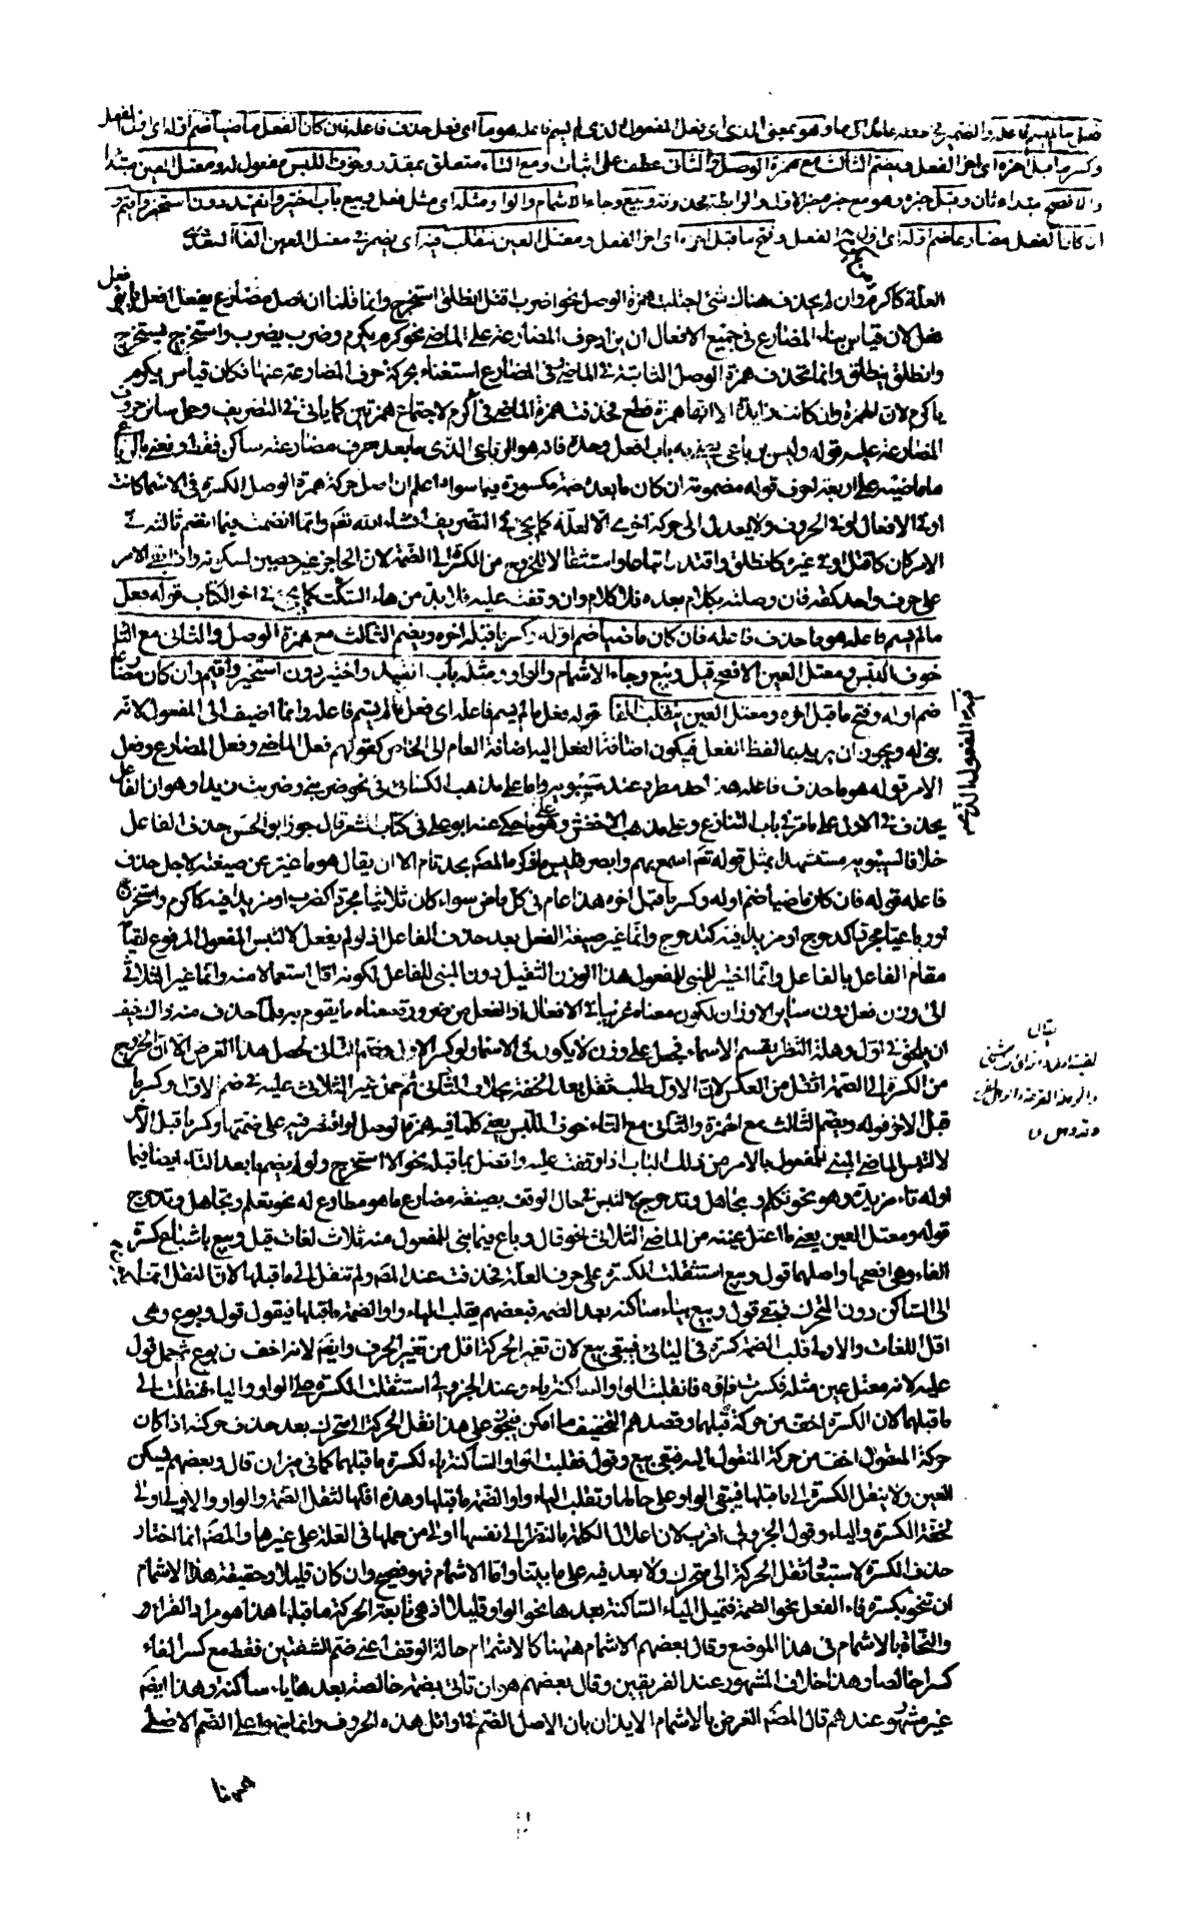 فعل ما لم يسم فاعله والضمير في فاعله عائد الى ما وهو بمعنى الذى اى فعل المفعول الذى لم يسم فاعله هو ما اى فعل حذف فاعله فان كان الفعل ماضيا ضم اوله اى اول الفعل
وكسر ما قبل اخره اى اخر الفعل ويضم الثالث مع همزة الوصل والثانى عطف على الثالث ومع التاء متعلق بمقدر وخوف اللبس مفعول له ومعتل العين مبتدا
والافصح مبتداء ثان وقيل خبره وهو مع خبره خبر الاول والرابطة محذوفة وبيع وجاء الاشمام والواو ومثله اى مثل فعل وبيع باب اختير وانقيد دون استخير واقيم و
ان كان الفعل مضارعا ضم اوله اى اول الفعل وفتح ما قبل اخره اى اخر الفعل ومعتل العين ينقلب فيه اى يضمر فى معتل العين الفا
العلة كاكرم وان لم يحذف هناك شئ اجتلبت همزة الوصل نحو اضرب اقتل انطلق استخرج وانما قلنا ان اصل مضارع يفعل افعل
فعل لان قياس بناء المضارع فى جميع الافعال ان يزاد حرف المضارعة على الماضى نحو كرم يكرم وضرب يضرب واستخرج يستخرج
وانطلق ينطلق وانما تحذف همزة الوصل الثابتة فى الماضى فى المضارع استغناء بحركة حرف المضارعة عنها فكان قياس يكرم
ياكرم لان الهمزة وان كانت زايدة الا انها همزة قطع فحذفت همزة الماضى فى أكرم لاجتماع همزتين كما ياتى فى التصريف وحمل سائر حروف
المضارعة عليه قوله وليس برباعى يعنى به باب افعل وحده فانه هو الرباعى الذى ما بعد حرف مضارعته ساكن فقط ونعنى بالرباعى
ما ماضيه على اربعة احرف قوله مضمومة ان كان ما بعده ضمة مكسورة فيما سواه اعلم ان اصل حركة همزة الوصل الكسرة فى الاسماء كانت
او فى الافعال او فى الحروف ولا يعدل الى حركة اخرى الا لعلة كما يجئ فى التصريف انشاء الله تعم وانما انضمت فيما انضم ثالثه فى
الامر كان كاقتل او فى غيره كانطلق واقتدر اتباعا واستثقالا للخروج من الكسرة الى الضمة لان الحاجز غير حصين لسكونه واذا بقى الامر
على حرف واحد كقه فان وصلته بكلام بعده فلا كلام وان وقفت عليه فلا بد من هاء السكت كما يجئ فى اخر الكتاب قوله فعل
ما لم يسم فاعله هو ما حذف فاعله فان كان ماضيا ضم اوله وكسر ما قبل اخره ويضم الثالث مع همزة الوصل والثانى مع التاء
خوف اللبس ومعتل العين الافصح قيل وبيع وجاء الاشمام والواو ومثله باب انقيد واختير دون استخير واقيم وان كان مضارعا
ضم اوله وفتح ما قبل اخره ومعتل العين ينقلب الفا قوله فعل ما لم يسم فاعله اى فعل ما لم يسم فاعله وانما اضيف الى المفعول لانه
بنى له ويجوز ان يريد بما لفظ الفعل فيكون اضافة الفعل اليه اضافة العام الى الخاص كقولهم فعل الماضى وفعل المضارع وفعل
الامر قوله هو ما حذف فاعله هذا حد مطرد عند سيبويه واما على مذهب الكسائى فى نحو ضربنى وضربت زيدا وهو ان الفاعل
يحذف فى الاول على ما مر فى باب التنازع وعلى مذهب الاخفش وهو ما حكى عنه ابو على فى كتاب الشعر قال جوز ابو الحسن حذف الفاعل
خلافا لسيبويه مستشهدا بمثل قوله تعم اسمع بهم وابصر فليس ما ذكره المصم بحد تام الا ان يقال هو ما غير عن صيغته لاجل حذف
فاعله قوله فان كان ماضيا ضم اوله وكسر ما قبل اخره هذا عام فى كل ماض سواء كان ثلاثيا مجردا كضرب او مزيدا فيه كاكرم واستخرج
او رباعيا مجردا كدحرج او مزيدا فيه كتدحرج وانما غير صيغة الفعل بعد حذف الفاعل اذ لو لم يفعل لالتبس المفعول المرفوع لقيامه
مقام الفاعل بالفاعل وانما اختير للمبنى للمفعول هذا الوزن الثقيل دون المبنى للفاعل لكونه اقل استعمالا منه وانما غير الثلاثى
الى وزن فعل دون سائر الاوزان لكون معناه غريبا فى الافعال اذ الفعل من ضرورة معناه ما يقوم به فلما حذف منه ذلك خيف
ان يلحق فى اول وهلة النظر بقسم الاسماء فجعل على وزن لا يكون فى الاسماء ولو كسر الاول وضم الثانى لحصل هذا الغرض الا ان الخروج
من الكسرة الى الضمة اثقل من العكس لان الاول طلب ثقل بعد الخفة بخلاف الثانى ثم حمل غير الثلاثى عليه فى ضم الاول وكسر ما
قبل الاخر قوله ويضم الثالث مع الهمزة والثانى مع التاء خوف اللبس يعنى كلما فيه همزة الوصل لو اقتصر فيه على ضمتها وكسر ما قبل الاخر
لالتبس الماضى المبنى للمفعول بالامر من ذلك الباب اذا وقفت عليه واتصل بما قبله نحو الا استخرج ولو لم يضم ما بعد التاء ايضا فيما
اوله تاء مزيدة وهو نحو تكلم وتجاهل وتدحرج لالتبس فى حال الوقف بصيغة مضارع ما هو مطاوع له نحو تعلم وتجاهل وتدحرج
قوله ومعتل العين يعنى ما اعتل عينه من الماضى الثلاثى نحو قال وباع فيما بنى للمفعول منه ثلاث لغات قيل وبيع باشباع كسرة
الفاء وهى افصحها واصلهما قول وبيع استثقلت الكسرة على حرف العلة فحذفت عند المصم ولم تنقل الى ما قبلها لان النقل انما
الى الساكن دون المتحرك فبقى قول وبيع بياء ساكنة بعد الضمة فبعضهم يقلب الياء واوا لضمة ما قبلها فيقول قول وبوع وهى
اقل اللغات والاولى قلب الضمة كسرة فى اليائى فيبقى بيع لان تغيير الحركة اقل من تغيير الحرف وايضم لانه اخف من بوع ثم حمل قول
عليه لانه معتل عين مثله فكسرت فاؤه فانقلبت الواو الساكنة ياء وعند الجزولى استثقلت الكسرة على الواو والياء فنقلت الى
ما قبلهما لان الكسرة اخف من حركة قبلهما وقصدهم التخفيف ما امكن فيجوز على هذا نقل الحركة الى متحرك بعد حذف حركته اذا كان
حركة المنقول اخف من حركة المنقول اليه فبقى بيع وقول فقلبت الواو الساكنة ياء لكسرة ما قبلها كما فى ميزان قال وبعضهم يسكن
العين ولا ينقل الكسرة الى ما قبلها فيبقى الواو على حالها وتقلب الياء واوا لضمة ما قبلها وهذه اقلها لثقل الضمة والواو والاولى اولى
لخفة الكسرة والياء وقول الجزولى اقرب لان اعلال الكلمة بالنظر الى نفسها اولى من حملها فى العلة على غيرها والمصم انما اختار
حذف الكسرة لاستبعاد نقل الحركة الى متحرك ولا بعد فيه على ما بينا واما الاشمام فهو فصيح وان كان قليلا وحقيقة هذا الاشمام
ان تنحو بكسرة فاء الفعل نحو الضمة فتميل الياء الساكنة بعدها نحو الواو قليلا اذ هى تابعة لحركة ما قبلها هذا هو مراد القراء و
والنحاة بالاشمام فى هذا الموضع وقال بعضهم الاشمام ههنا كالاشمام حالة الوقف اعنى ضم الشفتين فقط مع كسر الفاء
كسرا خالصا وهذا خلاف المشهور عند الفريقين وقال بعضهم هو ان تاتى بضمة خالصة بعدها ياء ساكنة وهذا ايضم
غير مشهور عندهم قال المصم الغرض بالاشمام الايذان بان الاصل الضم فى اوائل هذه الحروف وانما نبهوا على الضم الاصلى